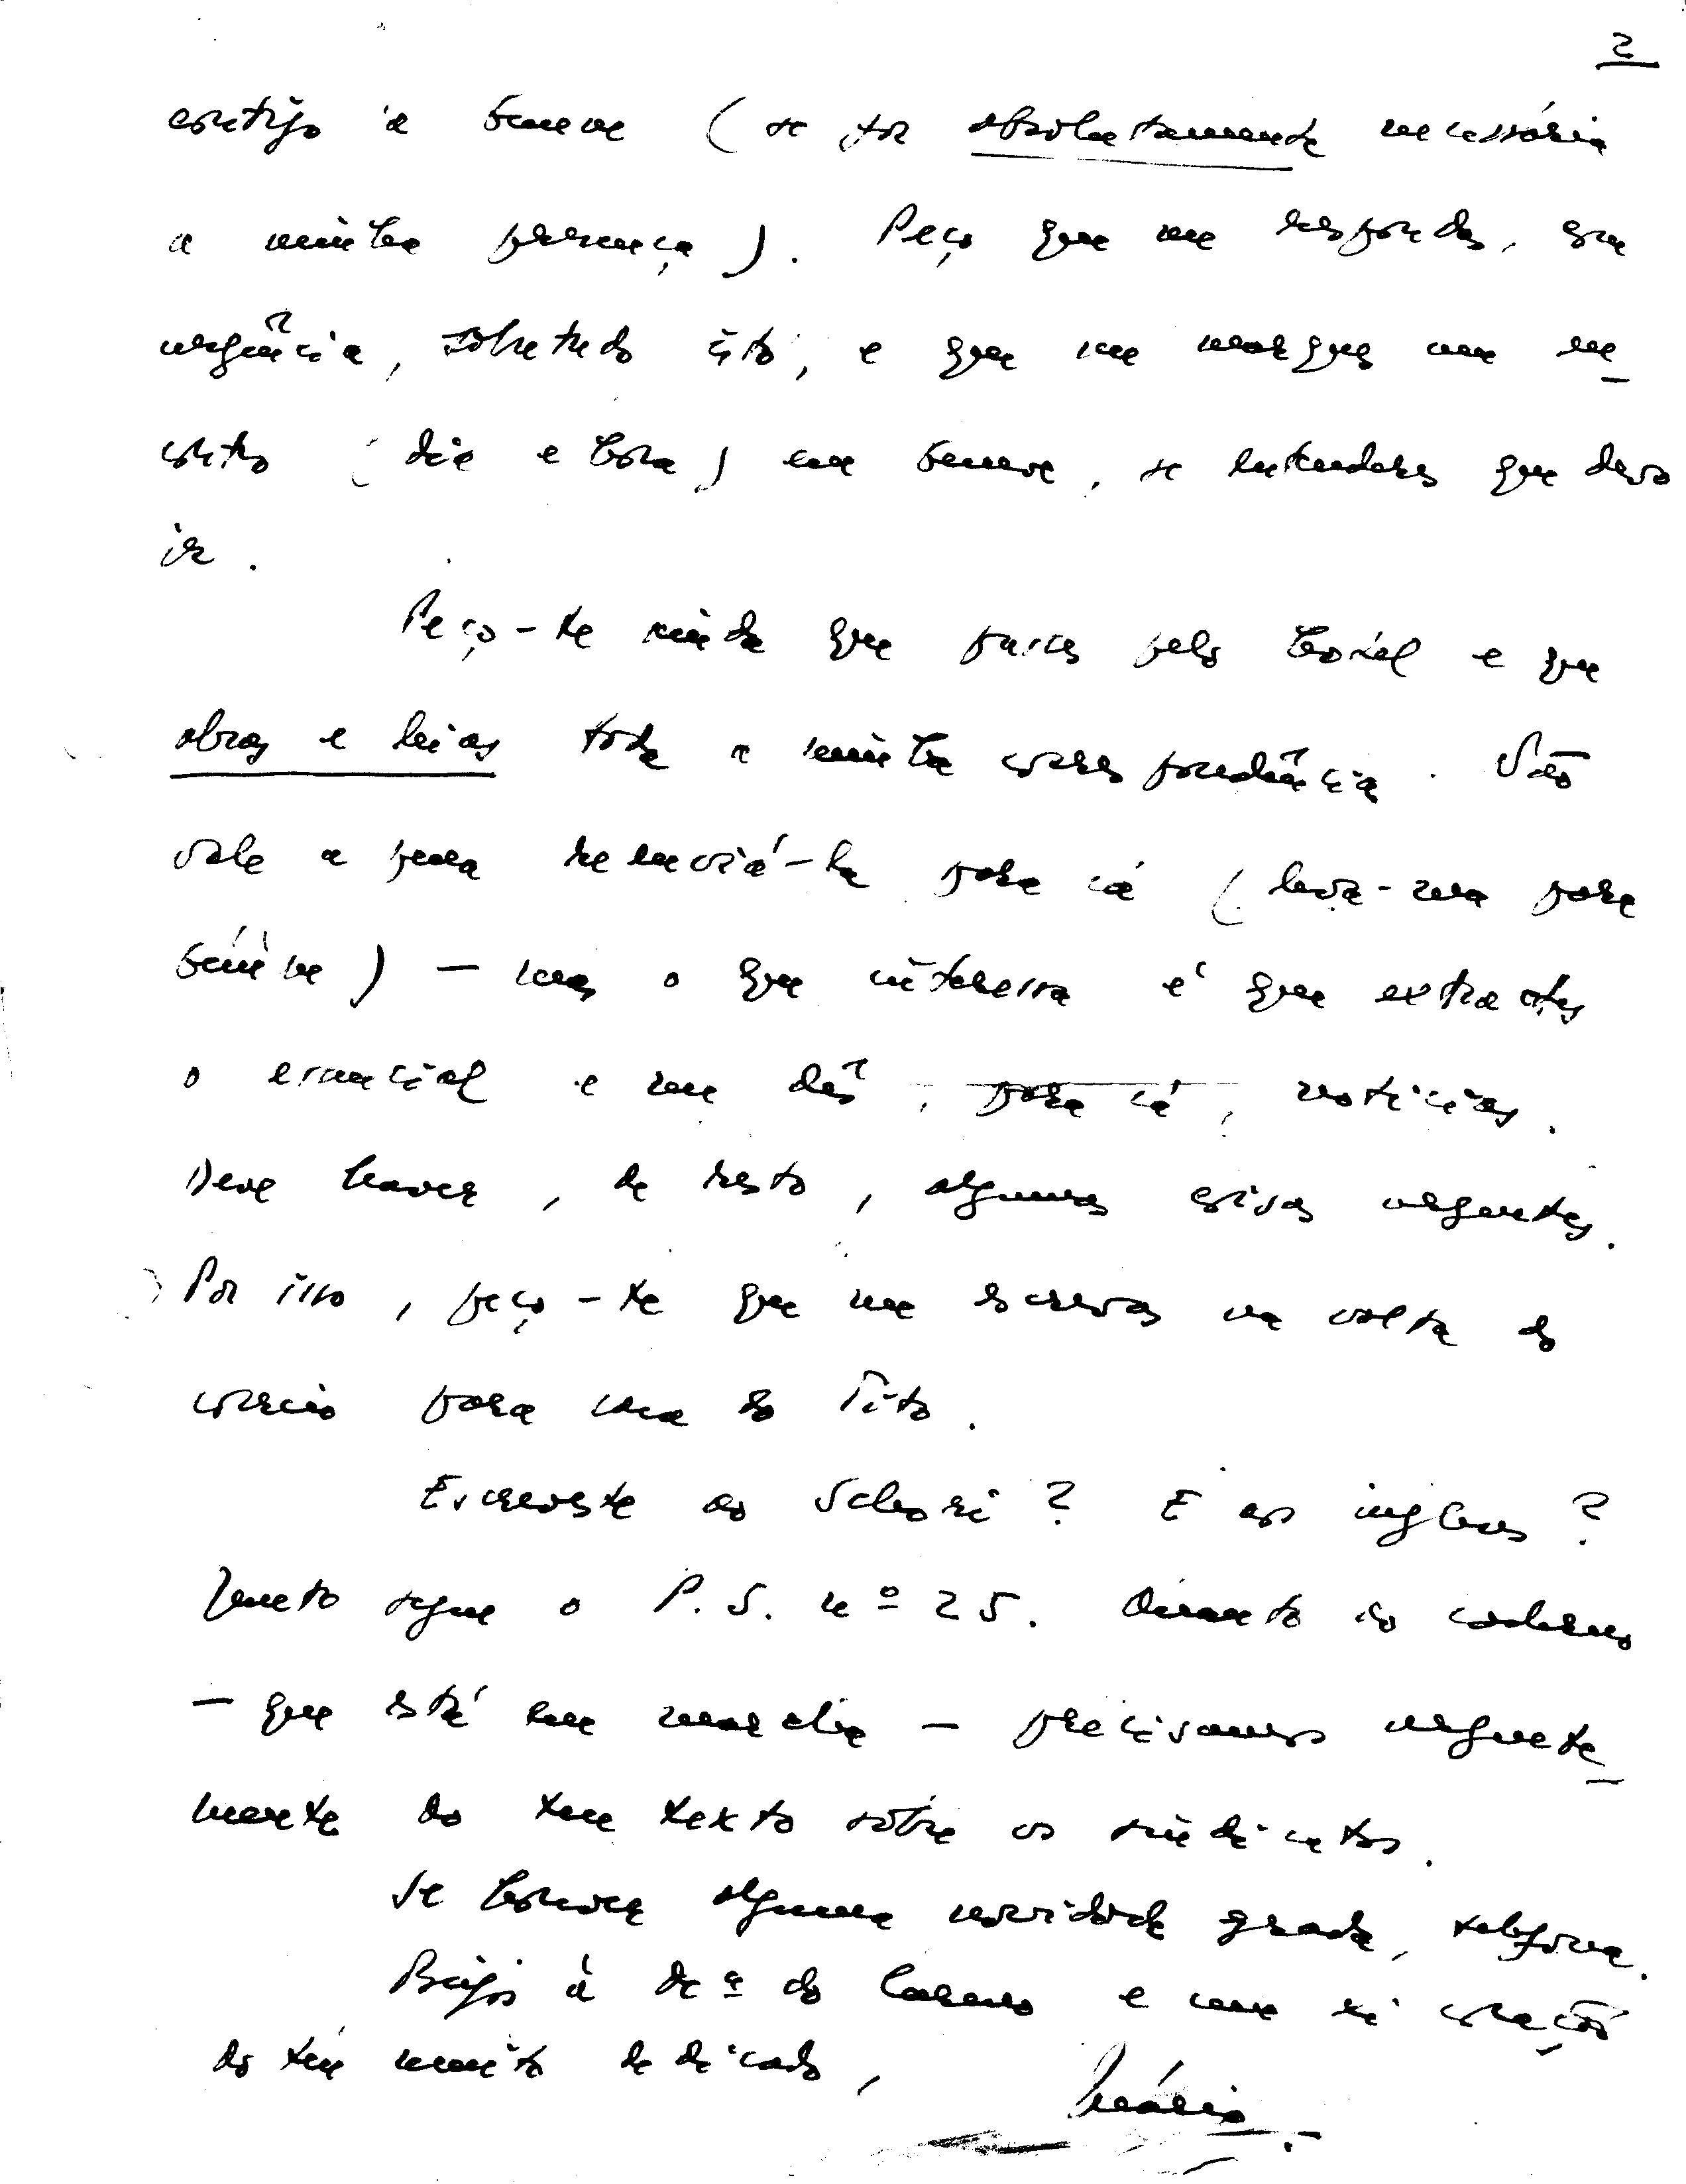 2
contigo a Genève (se for absolutamente necessária
a minha presença). Peço que me respondas, com
urgência, sobretudo isto, e que me marques um en-
contro (dia e hora) em Genève, se entenderes que devo
ir.
Peço-te ainda que passes pelo hotel e que
abras e leias toda a minha correspondência. Não
vale a pena reenviá-la para cá (leva-ma para
Genève) — mas o que interessa é que extractes
o essencial e me dês, para cá, notícias.
Deve haver, de resto, algumas coisas urgentes.
Por isso, peço-te que me escrevas na volta do
correio para casa do Tito.
Escreveste ao Schori? E aos ingleses?
Junto segue o P.S. nº 25. Quanto ao caderno
— que está em marcha — precisamos urgente-
mente do teu texto sôbre os sindicatos.
Se houver alguma novidade grada, telefona.
Beijos à de do e um xi coração
do teu muito dedicado,
Mário.